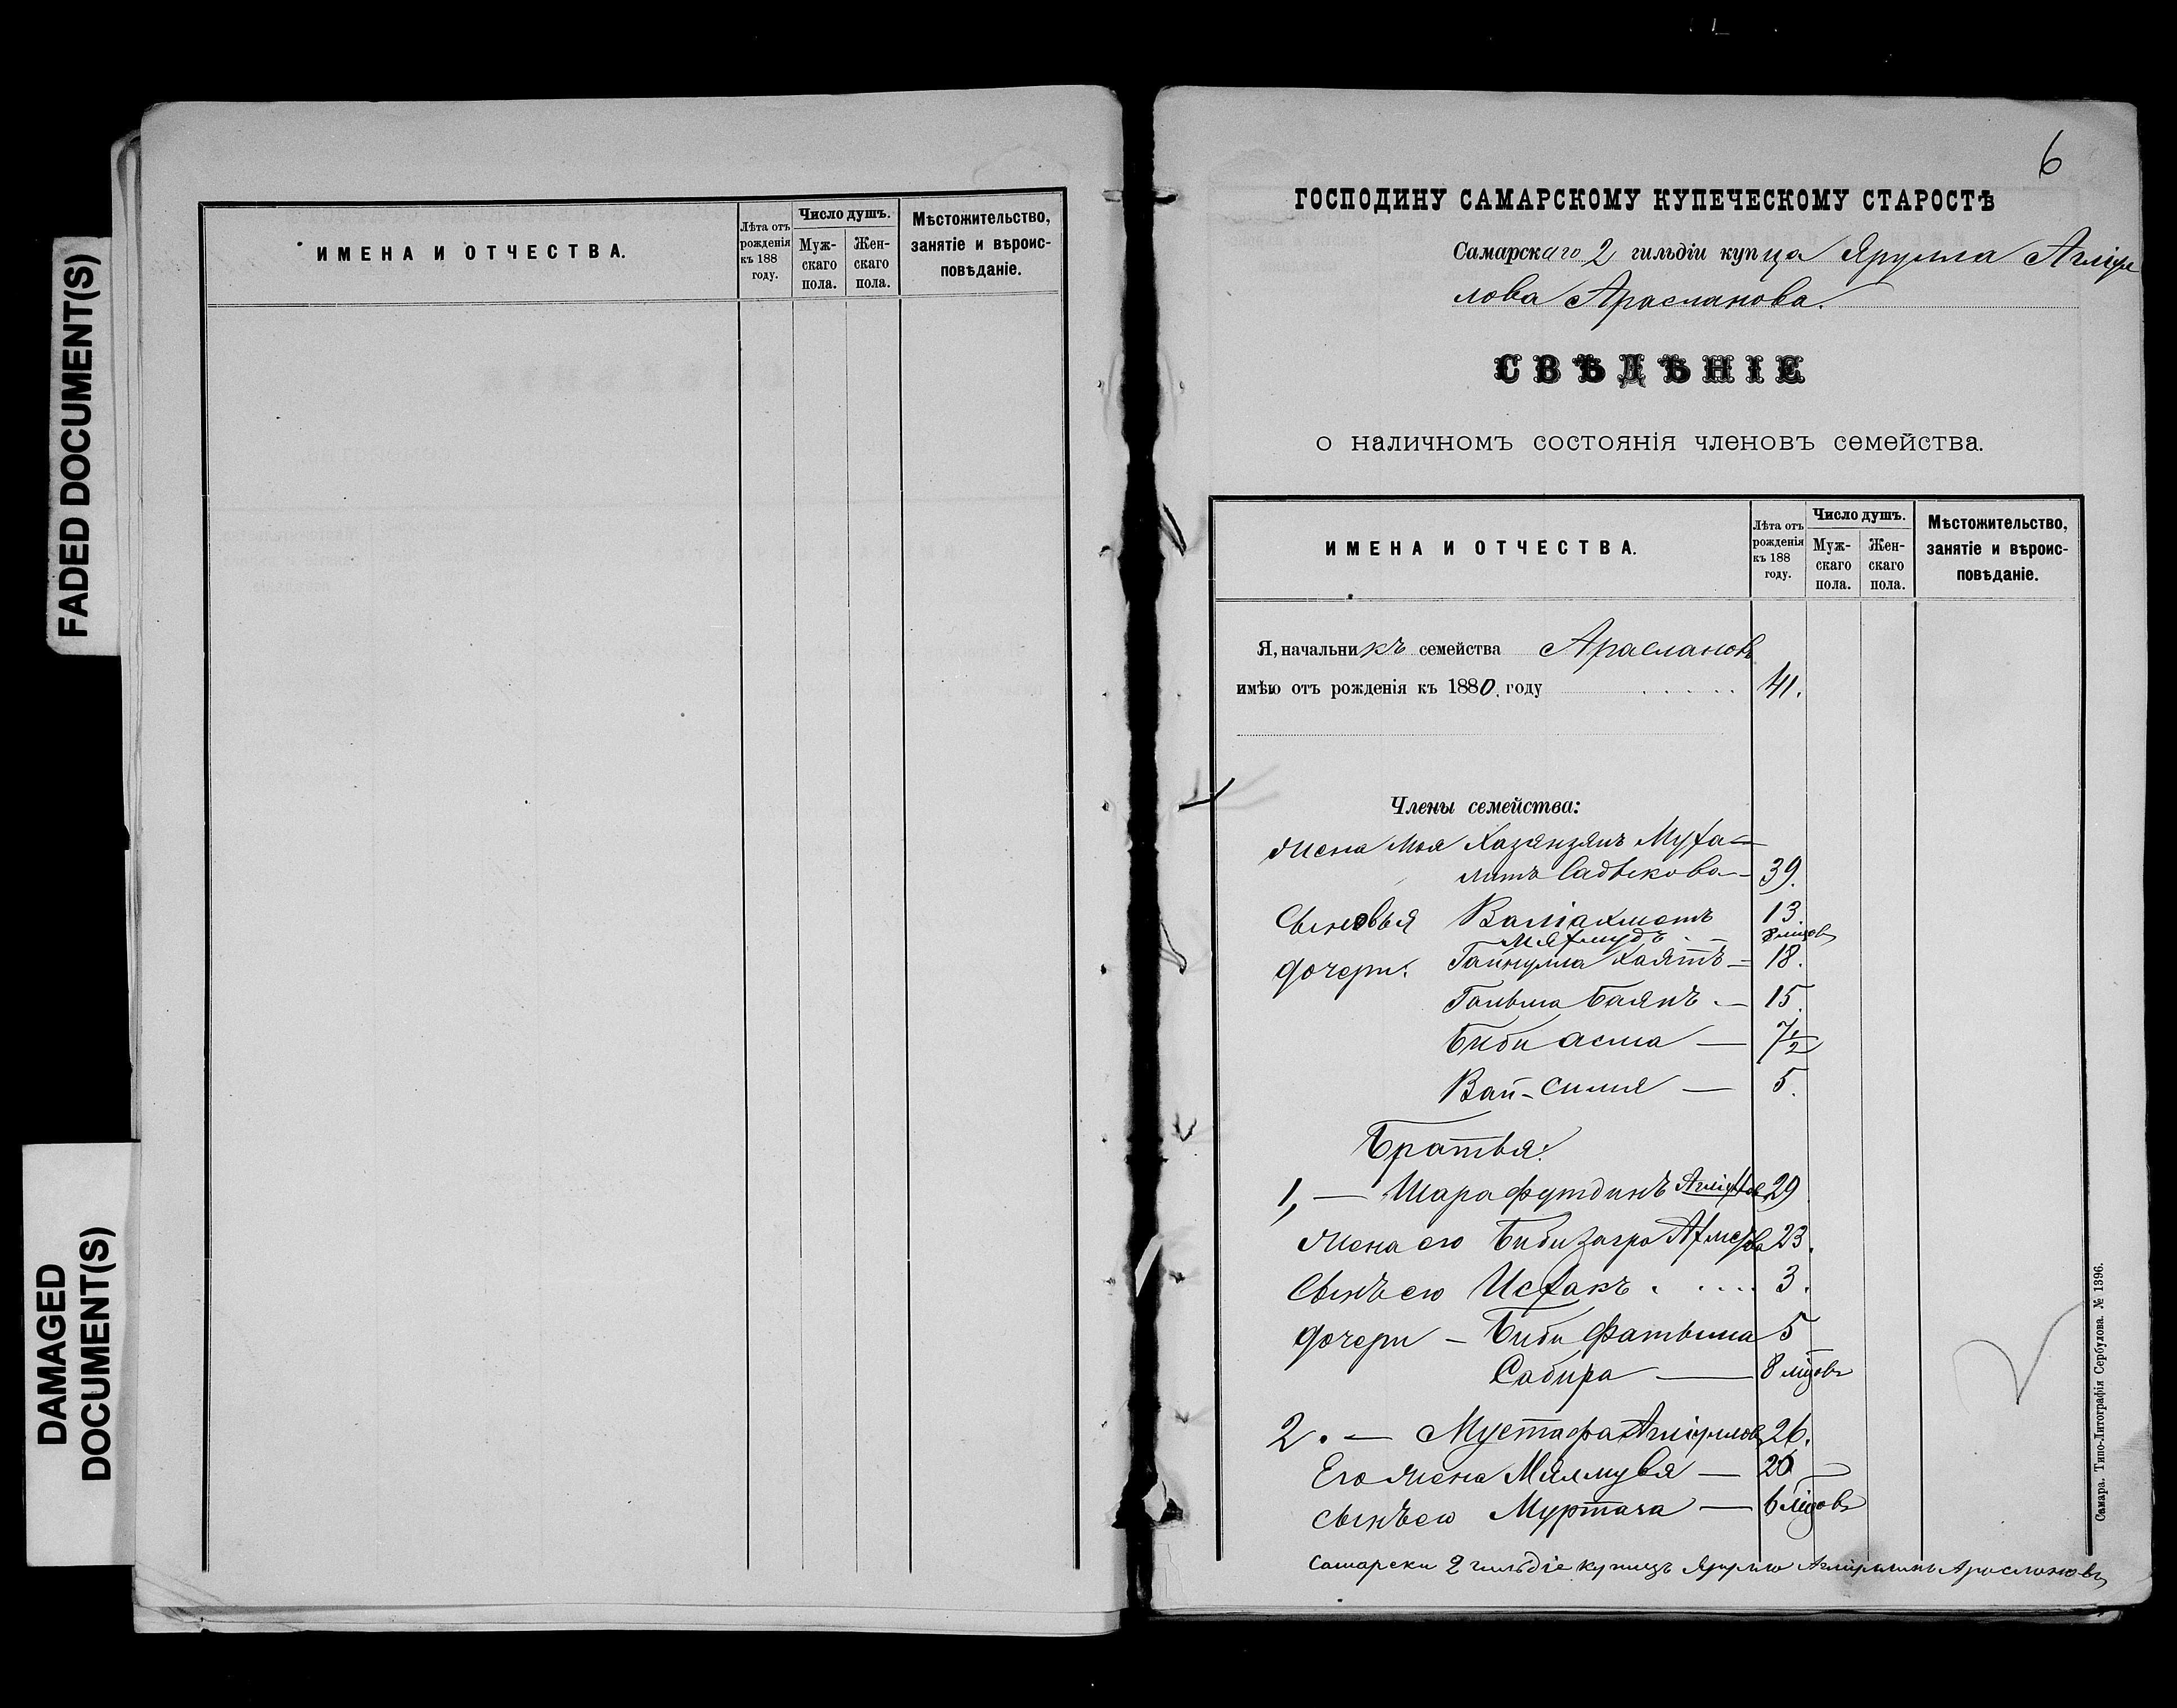 FADED DOCUMENT(S)
DAMAGED
DOCUMENT(S)
ИМЕНА И ОТЧЕСТВА.
Лѣта отъ рожденія къ 188 году.
Число душъ.
Мужскаго пола.
Женскаго пола.
Мѣстожительство,
занятіе и вѣроис-
повѣданіе.
6
ГОСПОДИНУ САМАРСКОМУ КУПЕЧЕСКОМУ СТАРОСТѢ
Самарскаго 2 гильдіи купца Ярулла
лова Арасланова.
СВѢДѢНІЕ
о наличномъ состоянія членовъ семейства.
ИМЕНА И ОТЧЕСТВА.
Лѣта отъ
рожденія
къ 188
году.
Число душъ.
Муж-
скаго
пола.
Жен-
скаго
пола.
Мѣстожительство,
занятіе и вѣроис-
повѣданіе.
Я, начальникъ семейства Араслановъ
имѣю отъ рожденія къ 1880. году 41.
Члены семейства:
Жена моя Муха-
39.
Сыновья Валіахметъ 13.
Мяхмудъ 8 мцовъ
Дочери: Гайнулла Хаятъ — 18.
Баянъ — 15.
Биби асма — 7½
Вай-силия — 5.
Братья:
1, — Шарафутдинъ 29
Жена его Бибизагра Ахметова 23.
Сынъ его Исхакъ 3.
Дочери — Биби Фатьима 5
Сабира — 8 мцовъ
2. — Мустафа 26.
Его жена — 20
сынъ его Муртаза — 6 мцовъ
Самарски 2 гильдіе купецъ Араслановъ
Самара. Типо-Литографія Сербулова. № 1396.